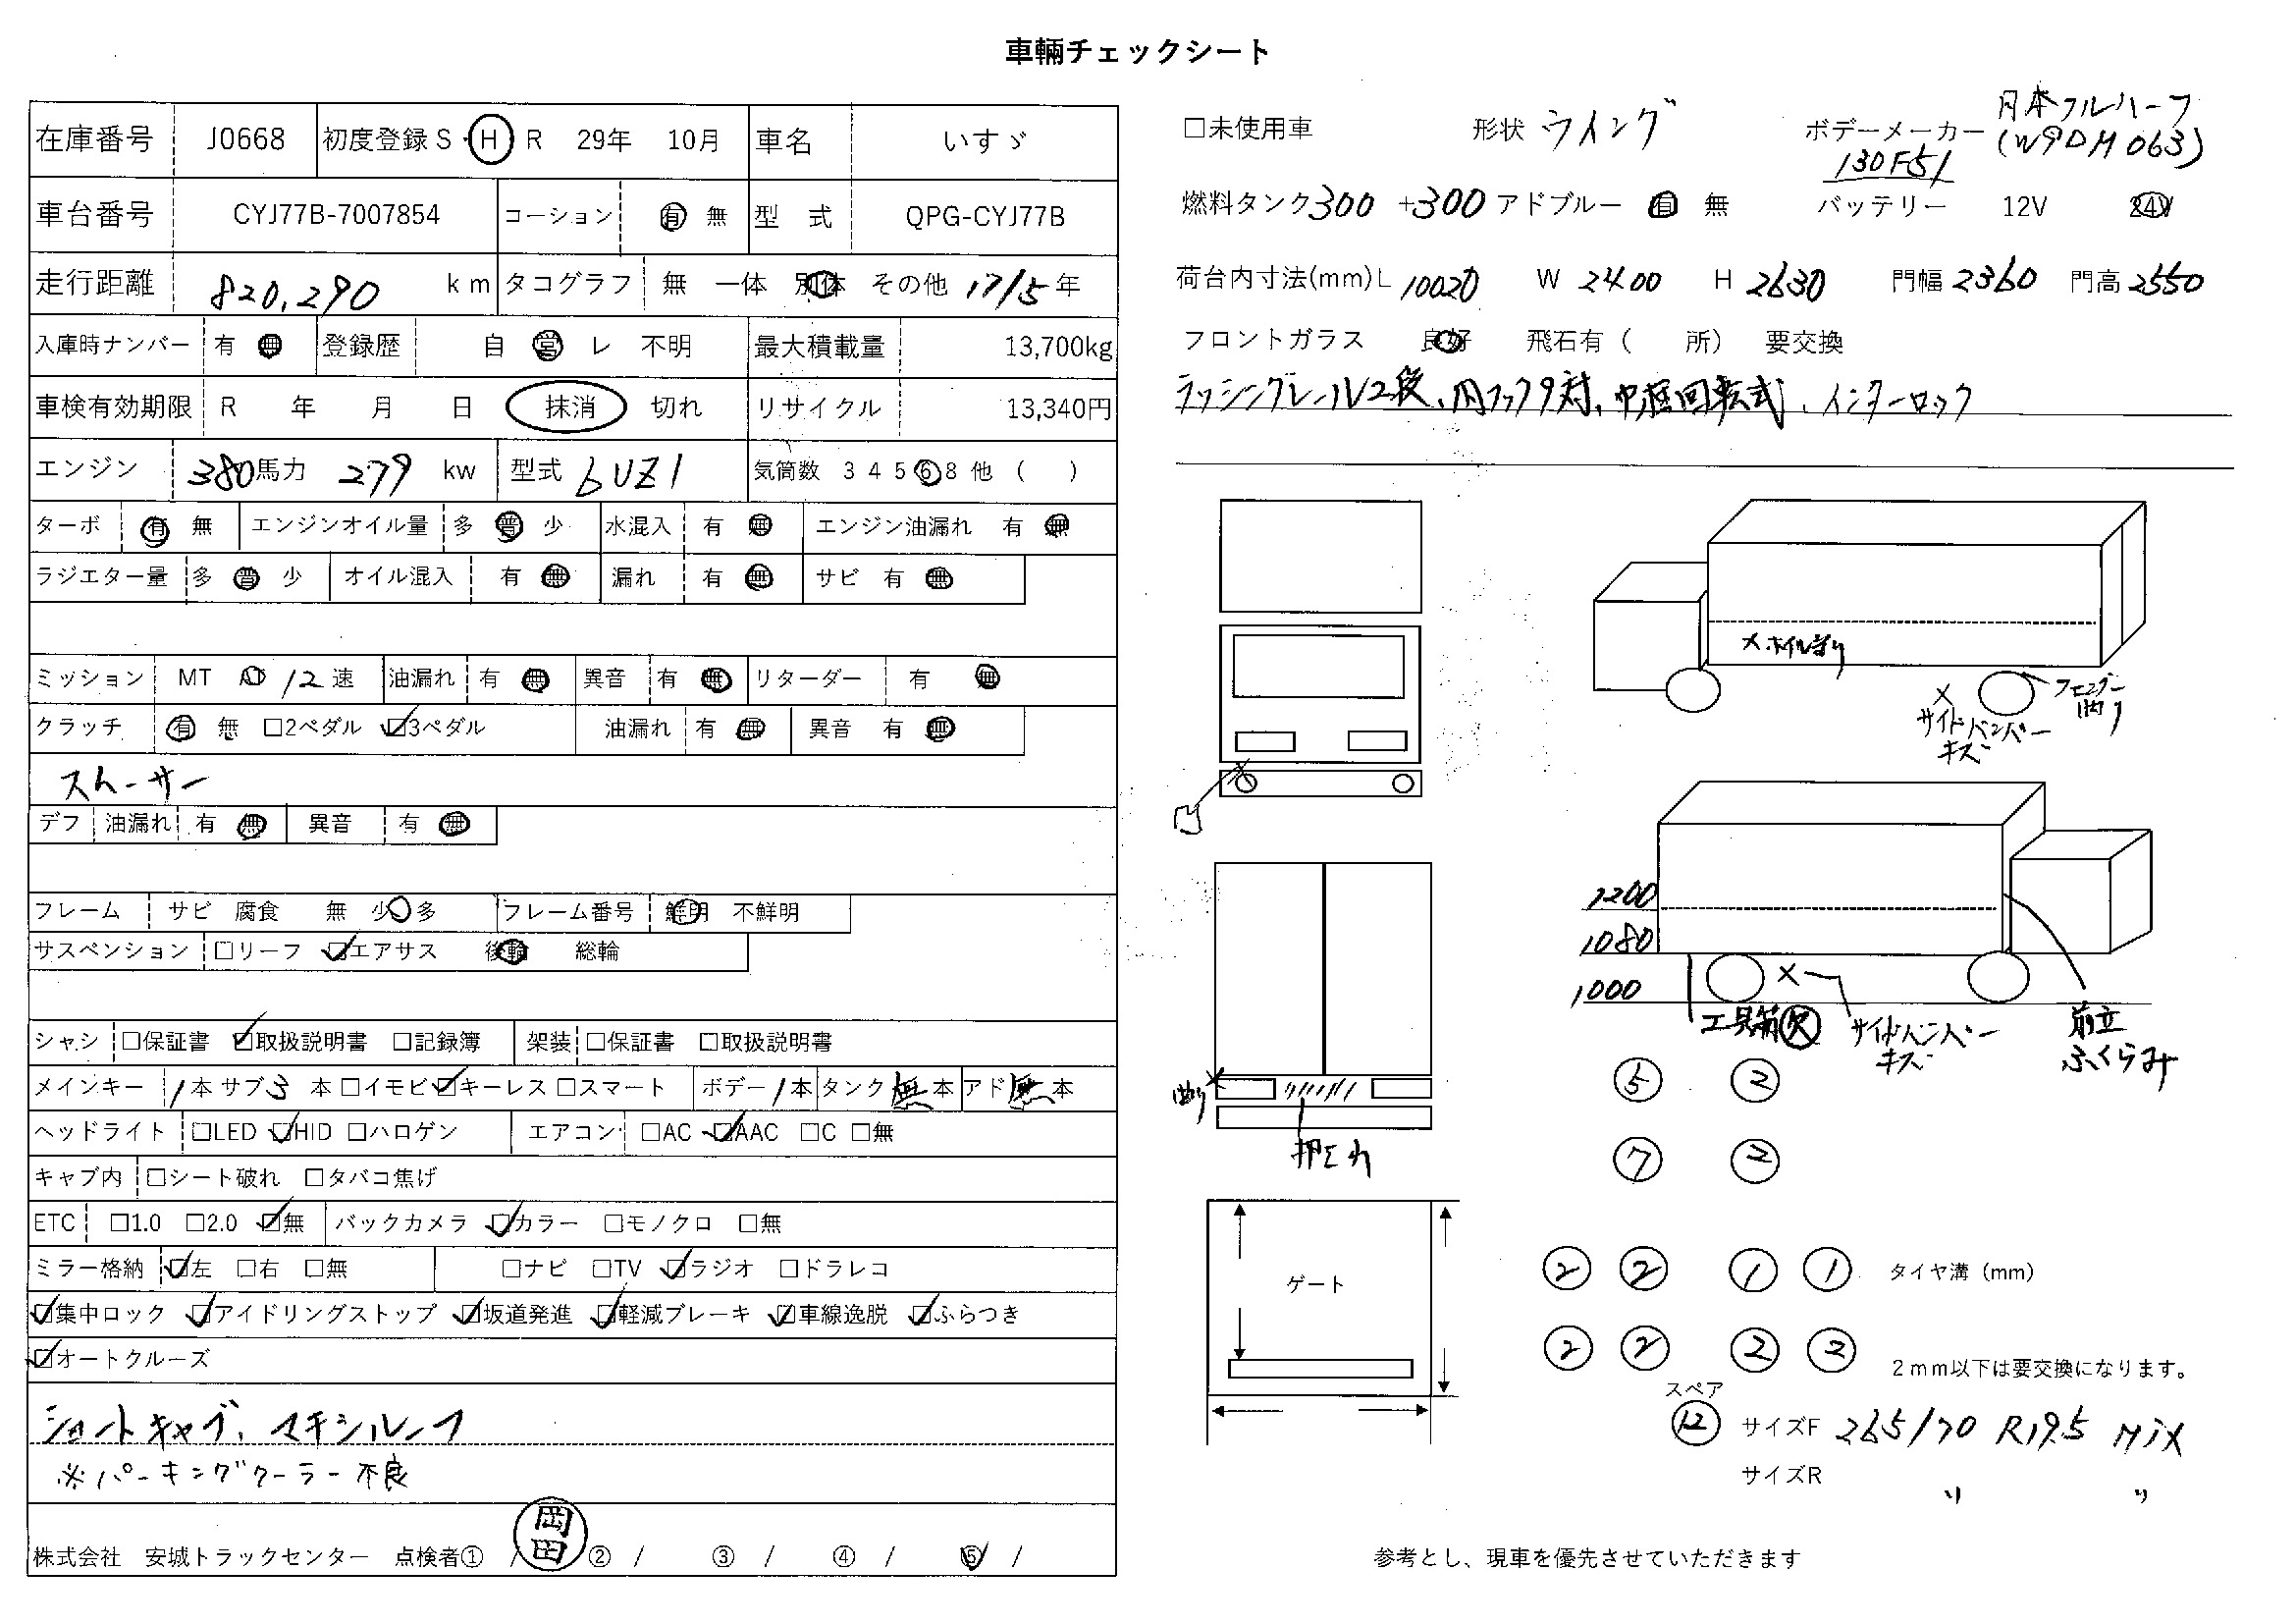 車輛チェックシート
在庫番号 J0668 初度登録 S・H R 29年 10月 車名 いすゞ
車台番号 CYJ77B-7007854 コーション 有 無 型 式 QPG-CYJ77B
走行距離 820,290 km タコグラフ 無 一体 別体 その他 17/5年
入庫時ナンバー 有 無 登録歴 自 営 レ 不明 最大積載量 13,700kg
車検有効期限 R 年 月 日 抹消 切れ リサイクル 13,340円
エンジン 380馬力 279 kw 型式 6UZ1 気筒数 3 4 5 6 8 他 ( )
ターボ 有 無 エンジンオイル量 多 普 少 水混入 有 無 エンジン油漏れ 有 無
ラジエター量 多 普 少 オイル混入 有 無 漏れ 有 無 サビ 有 無
ミッション MT 12速 油漏れ 有 無 異音 有 無 リターダー 有 無
クラッチ 有 無 □2ペダル ☑3ペダル 油漏れ 有 無 異音 有 無
スムーサー
デフ 油漏れ 有 無 異音 有 無
フレーム サビ 腐食 無 少 多 フレーム番号 鮮明 不鮮明
サスペンション □リーフ ☑エアサス 後輪 総輪
シャシ □保証書 ☑取扱説明書 □記録簿 架装 □保証書 □取扱説明書
メインキー 1本 サブ3 本 □イモビ ☑キーレス □スマート ボデー1本 タンク無本 アド無本
ヘッドライト □LED ☑HID □ハロゲン エアコン □AC ☑AAC □C □無
キャブ内 □シート破れ □タバコ焦げ
ETC □1.0 □2.0 ☑無 バックカメラ ☑カラー □モノクロ □無
ミラー格納 ☑左 □右 □無 □ナビ □TV ☑ラジオ □ドラレコ
☑集中ロック ☑アイドリングストップ ☑坂道発進 ☑軽減ブレーキ ☑車線逸脱 ☑ふらつき
☑オートクルーズ
ショートキャブ、マキシルーフ
※パーキングクーラー不良
株式会社 安城トラックセンター 点検者① / 岡田 ② / ③ / ④ / ⑤ /
□未使用車 形状 ウイング ボデーメーカー 日本フルハーフ
(W9DM063)
130F51
燃料タンク300 +300 アドブルー 有 無 バッテリー 12V 24V
荷台内寸法(mm)L 10020 W 2400 H 2630 門幅 2360 門高 2550
フロントガラス 良好 飛石有 ( 所) 要交換
ラッシングレール2段、内フック9対、中柱回転式、インターロック
フェンダー
曲り
× サイドバンパー
キズ
凹
1200
1080
1000
工具箱欠
× サイドバンパー
キズ
前立
ふくらみ
曲り
押され
⑤ ②
⑦ ②
ゲート
② ② ① ① タイヤ溝(mm)
② ② ② ② 2mm以下は要交換になります。
スペア
⑫ サイズF 265/70 R19.5 MIX
サイズR 〃 〃
参考とし、現車を優先させていただきます